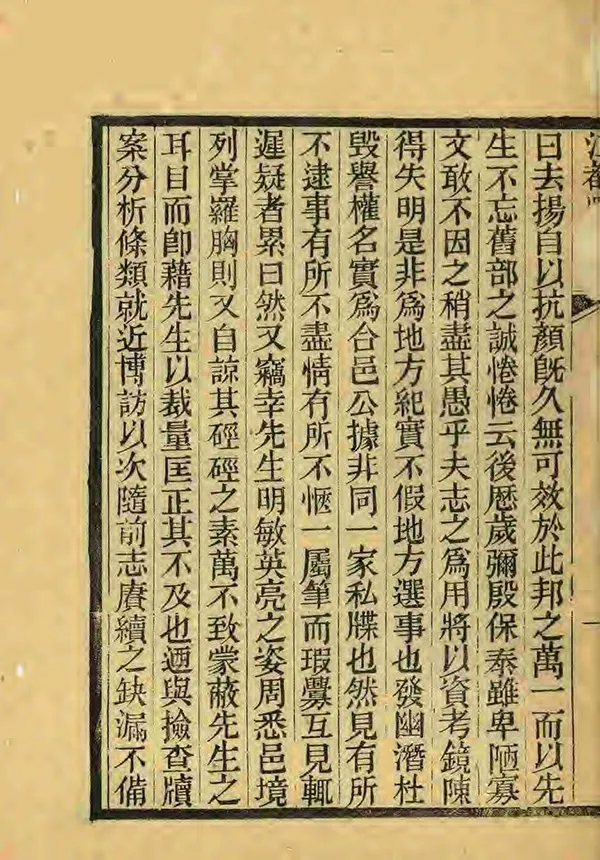 江都
曰去揚自以抗顏旣久無可效於此邦之萬一而以先
生不忘舊部之誠惓惓云後歷歲彌殷保奉雖卑陋寡
文敢不因之稍盡其愚乎夫志之爲用將以資考鏡陳
得失明是非爲地方紀實不假地方選事也發幽潛杜
毀譽權名實爲台邑公據非同一家私牒也然見有所
不逮事有所不盡情有所不愜一屬筆而瑕釁互見輒
遲疑者累日然又竊幸先生明敏英亮之姿周悉邑境
列掌羅胸則又自諒其硜硜之素萬不致蒙蔽先生之
耳目而卽藉先生以裁量匡正其不及也迺與撿查牘
案分析條類就近博訪以次隨前志賡續之缺漏不備